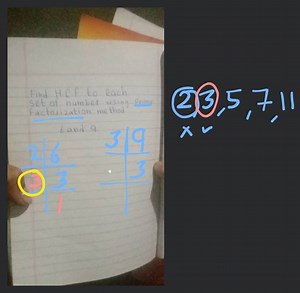 Find H.C.F to each
set of number using Prime
Factorization method
6 and 9.
2 6
3 3
1
3 9
3
2, 3, 5, 7, 11
x ✓